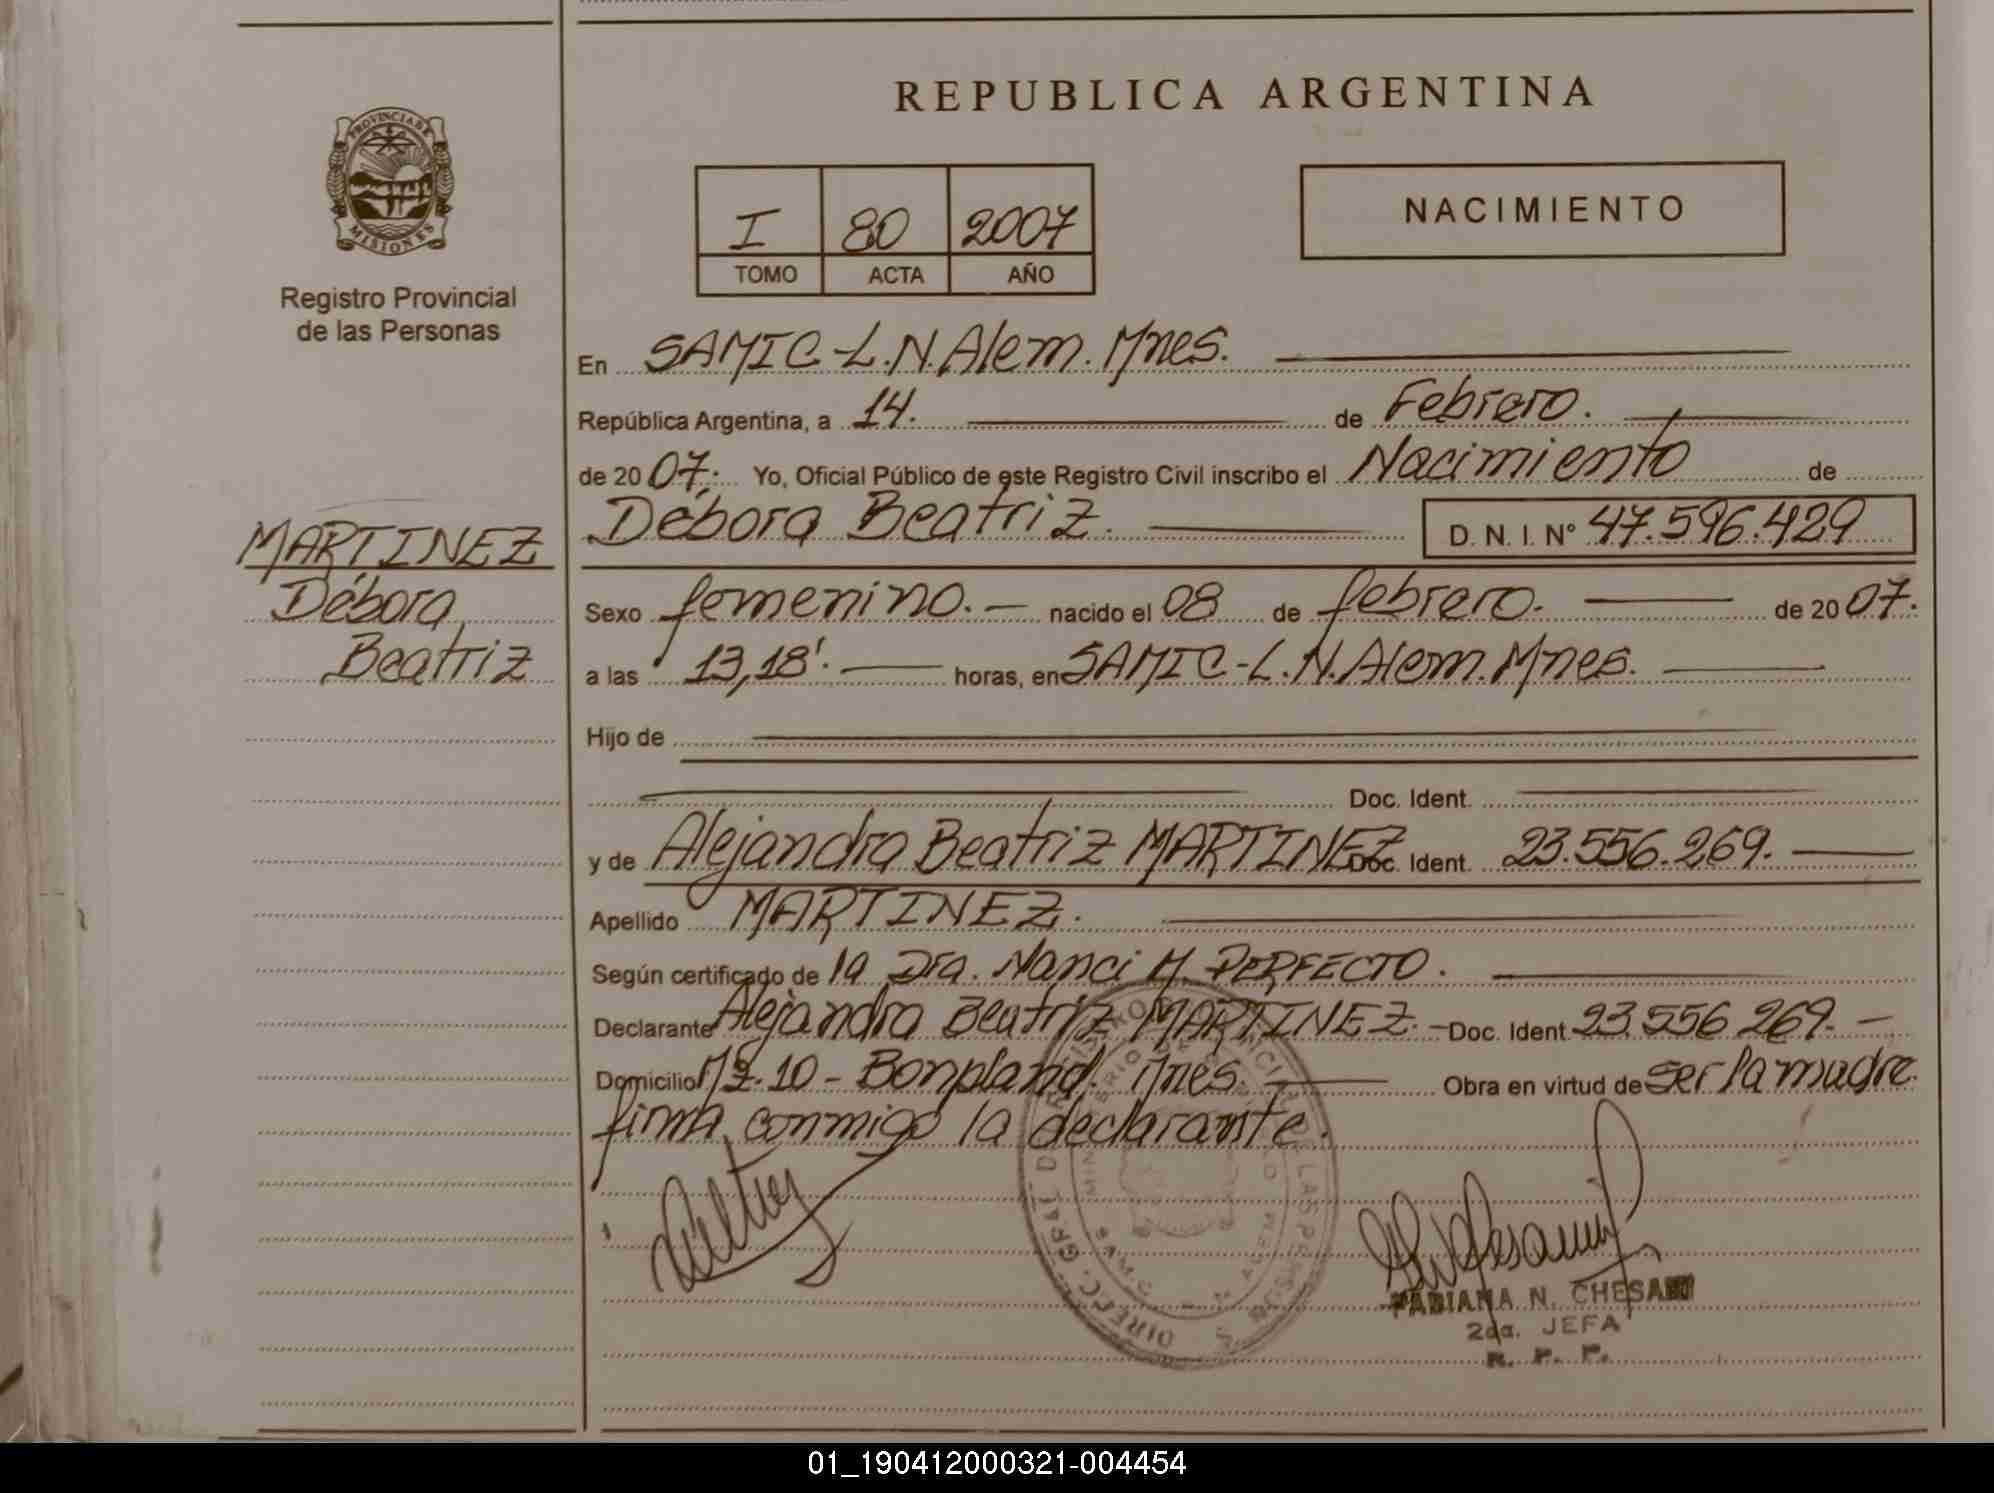 REPUBLICA ARGENTINA
PROVINCIA DE
MISIONES
Registro Provincial
de las Personas
I 80 2007
TOMO ACTA AÑO
NACIMIENTO
En SAMIC-L.N.Alem.Mnes.
República Argentina, a 14. de Febrero.
de 2007. Yo, Oficial Público de este Registro Civil inscribo el Nacimiento de
Débora Beatriz. D. N. I. Nº 47.596.429
MARTINEZ
Débora
Beatriz
Sexo femenino.- nacido el 08 de febrero. de 2007.
a las 13,18'. horas, en SAMIC-L.N.Alem.Mnes.
Hijo de
Doc. Ident.
y de Alejandra Beatriz MARTINEZ Doc. Ident. 23.556.269.
Apellido MARTINEZ.
Según certificado de la Dra. Nanci M. PERFECTO.
Declarante Alejandra Beatriz MARTINEZ.- Doc. Ident. 23.556 269.-
Domicilio Mz.10 - Bonpland. Mnes Obra en virtud de ser la madre.
firma conmigo la declarante.
FABIANA N. CHESANI
2da. JEFA
R. P. P.
01_190412000321-004454